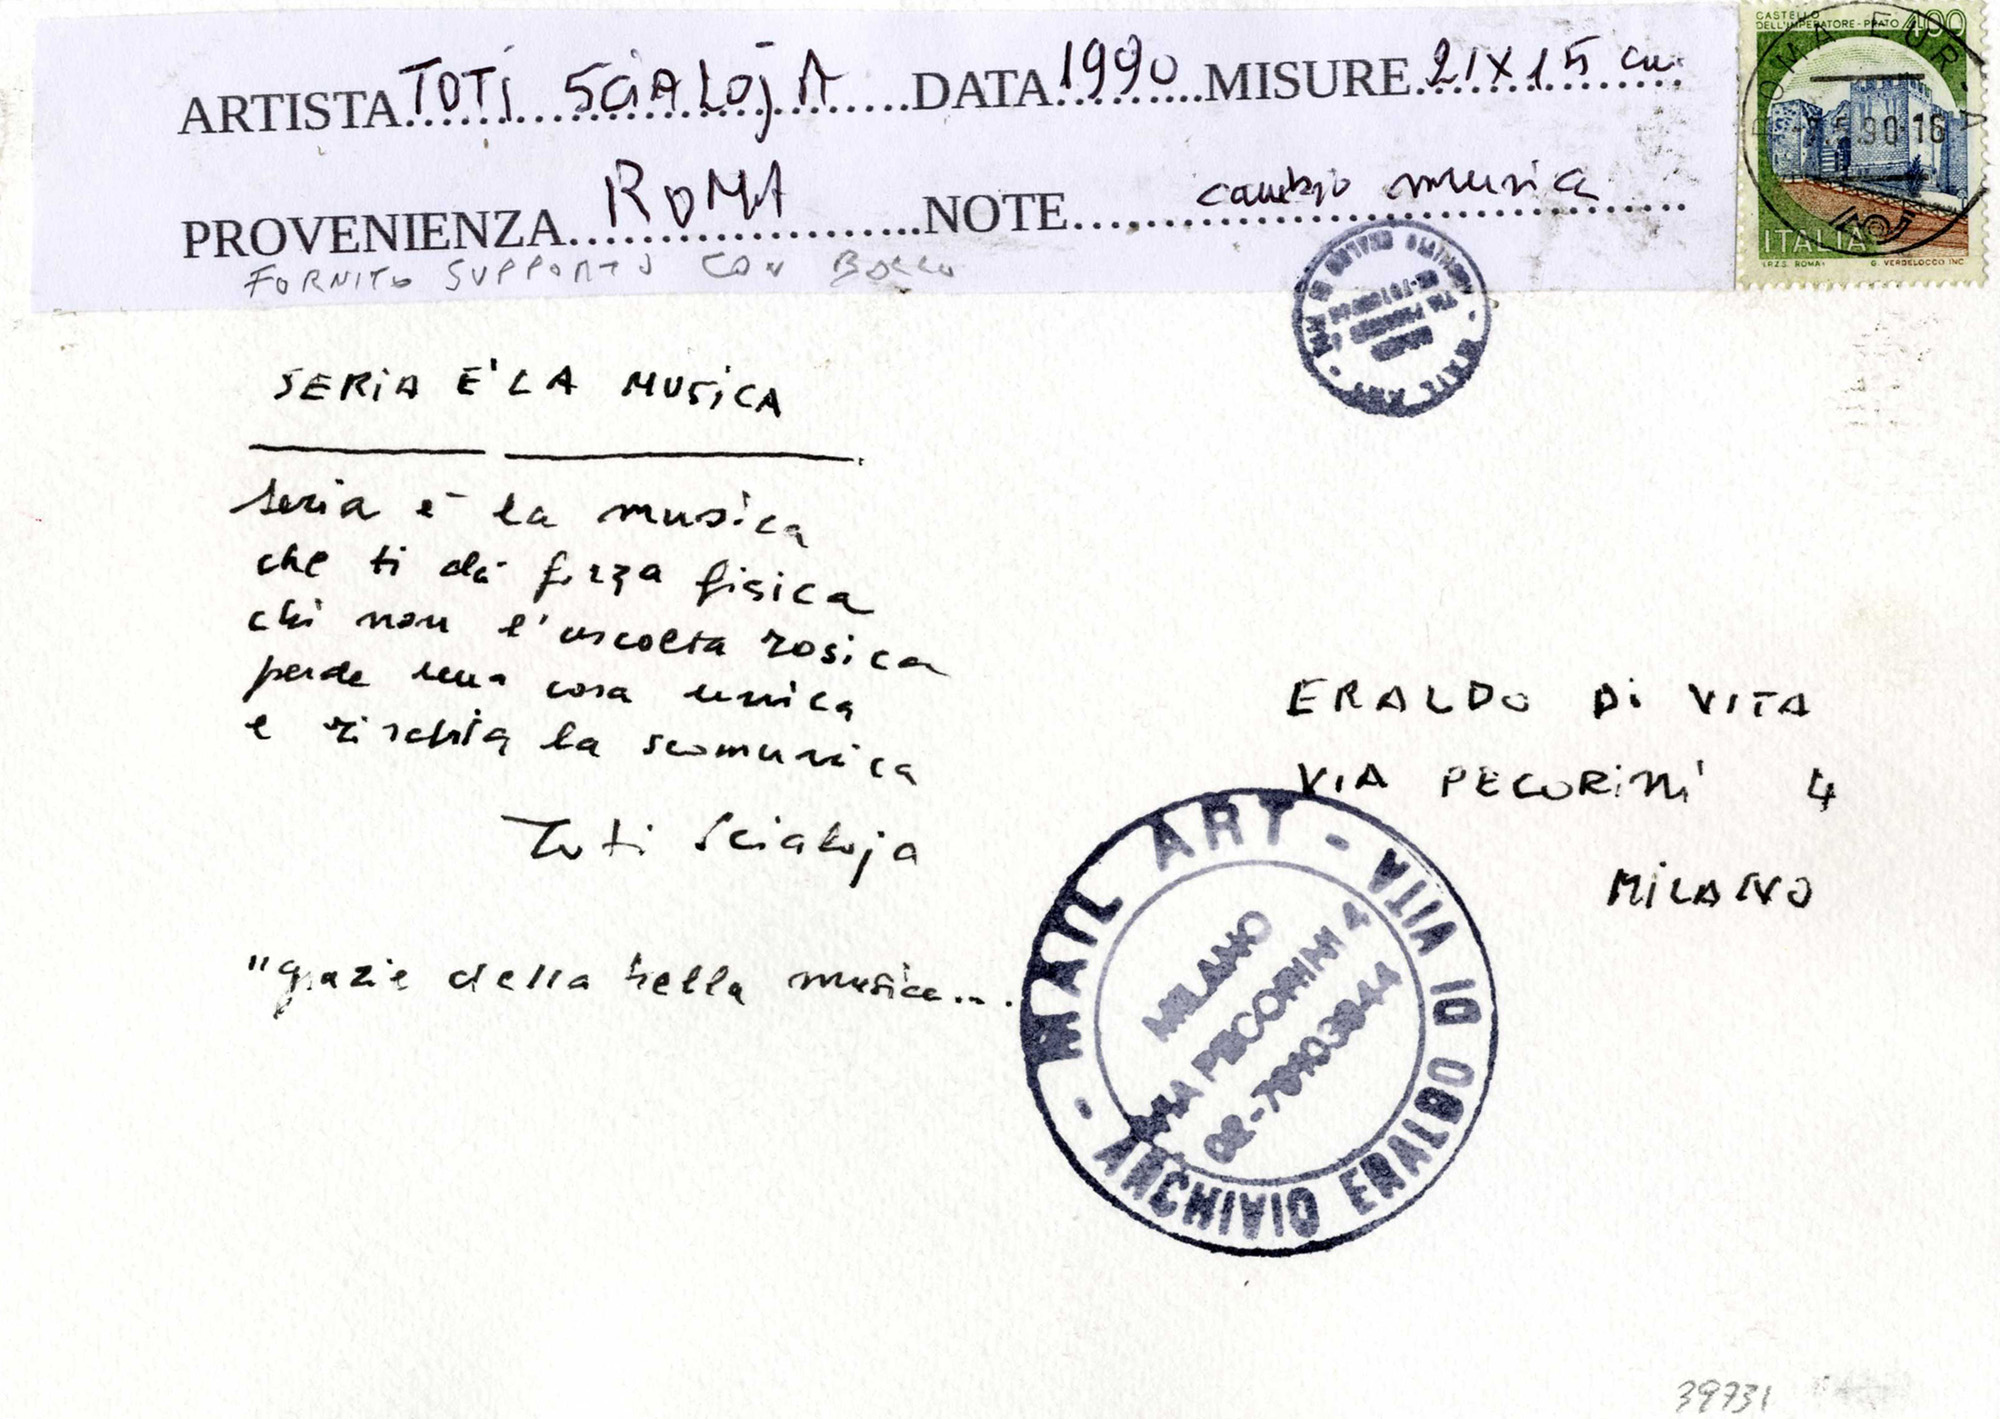 ARTISTA TOTI SCIALOJA DATA 1990 MISURE 21X15 cm
PROVENIENZA ROMA NOTE cambio musica
FORNITO SUPPORTO CON BOLLO
CASTELLO
DELL'IMPERATORE - PRATO 400
ROMA EUR - A
5.90 16
ITALIA
I.P.Z.S. ROMA G. VERDELOCCO INC.
SERIA E' LA MUSICA
seria è la musica
che ti dà forza fisica
chi non l'ascolta rosica
perde una cosa unica
e rischia la scomunica
Toti Scialoja
"grazie della bella musica...
ERALDO DI VITA
VIA PECORINI 4
MILANO
MAIL ART - ARCHIVIO ERALDO DI VITA -
MILANO
VIA PECORINI 4
39731